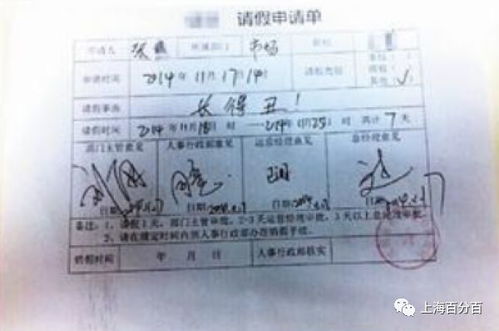 请假申请单
申请人 张 所属部门 市场 职位
申请时间 2014年11月17日 请假类别 其他 √
请假事由 长得丑！
请假时间 2014年11月18日 时——2014年11月25日 时 共计7天
部门主管意见 人事行政部意见 运营经理意见 总经理意见
日期 日期 日期 日期
备注：1、请假1天，部门主管审批，2-3天运营经理审批，3天以上总经理审批。
2、请在规定时间内到人事行政部办理销假手续。
销假时间 年 月 日 人事行政部核实
上海百分百